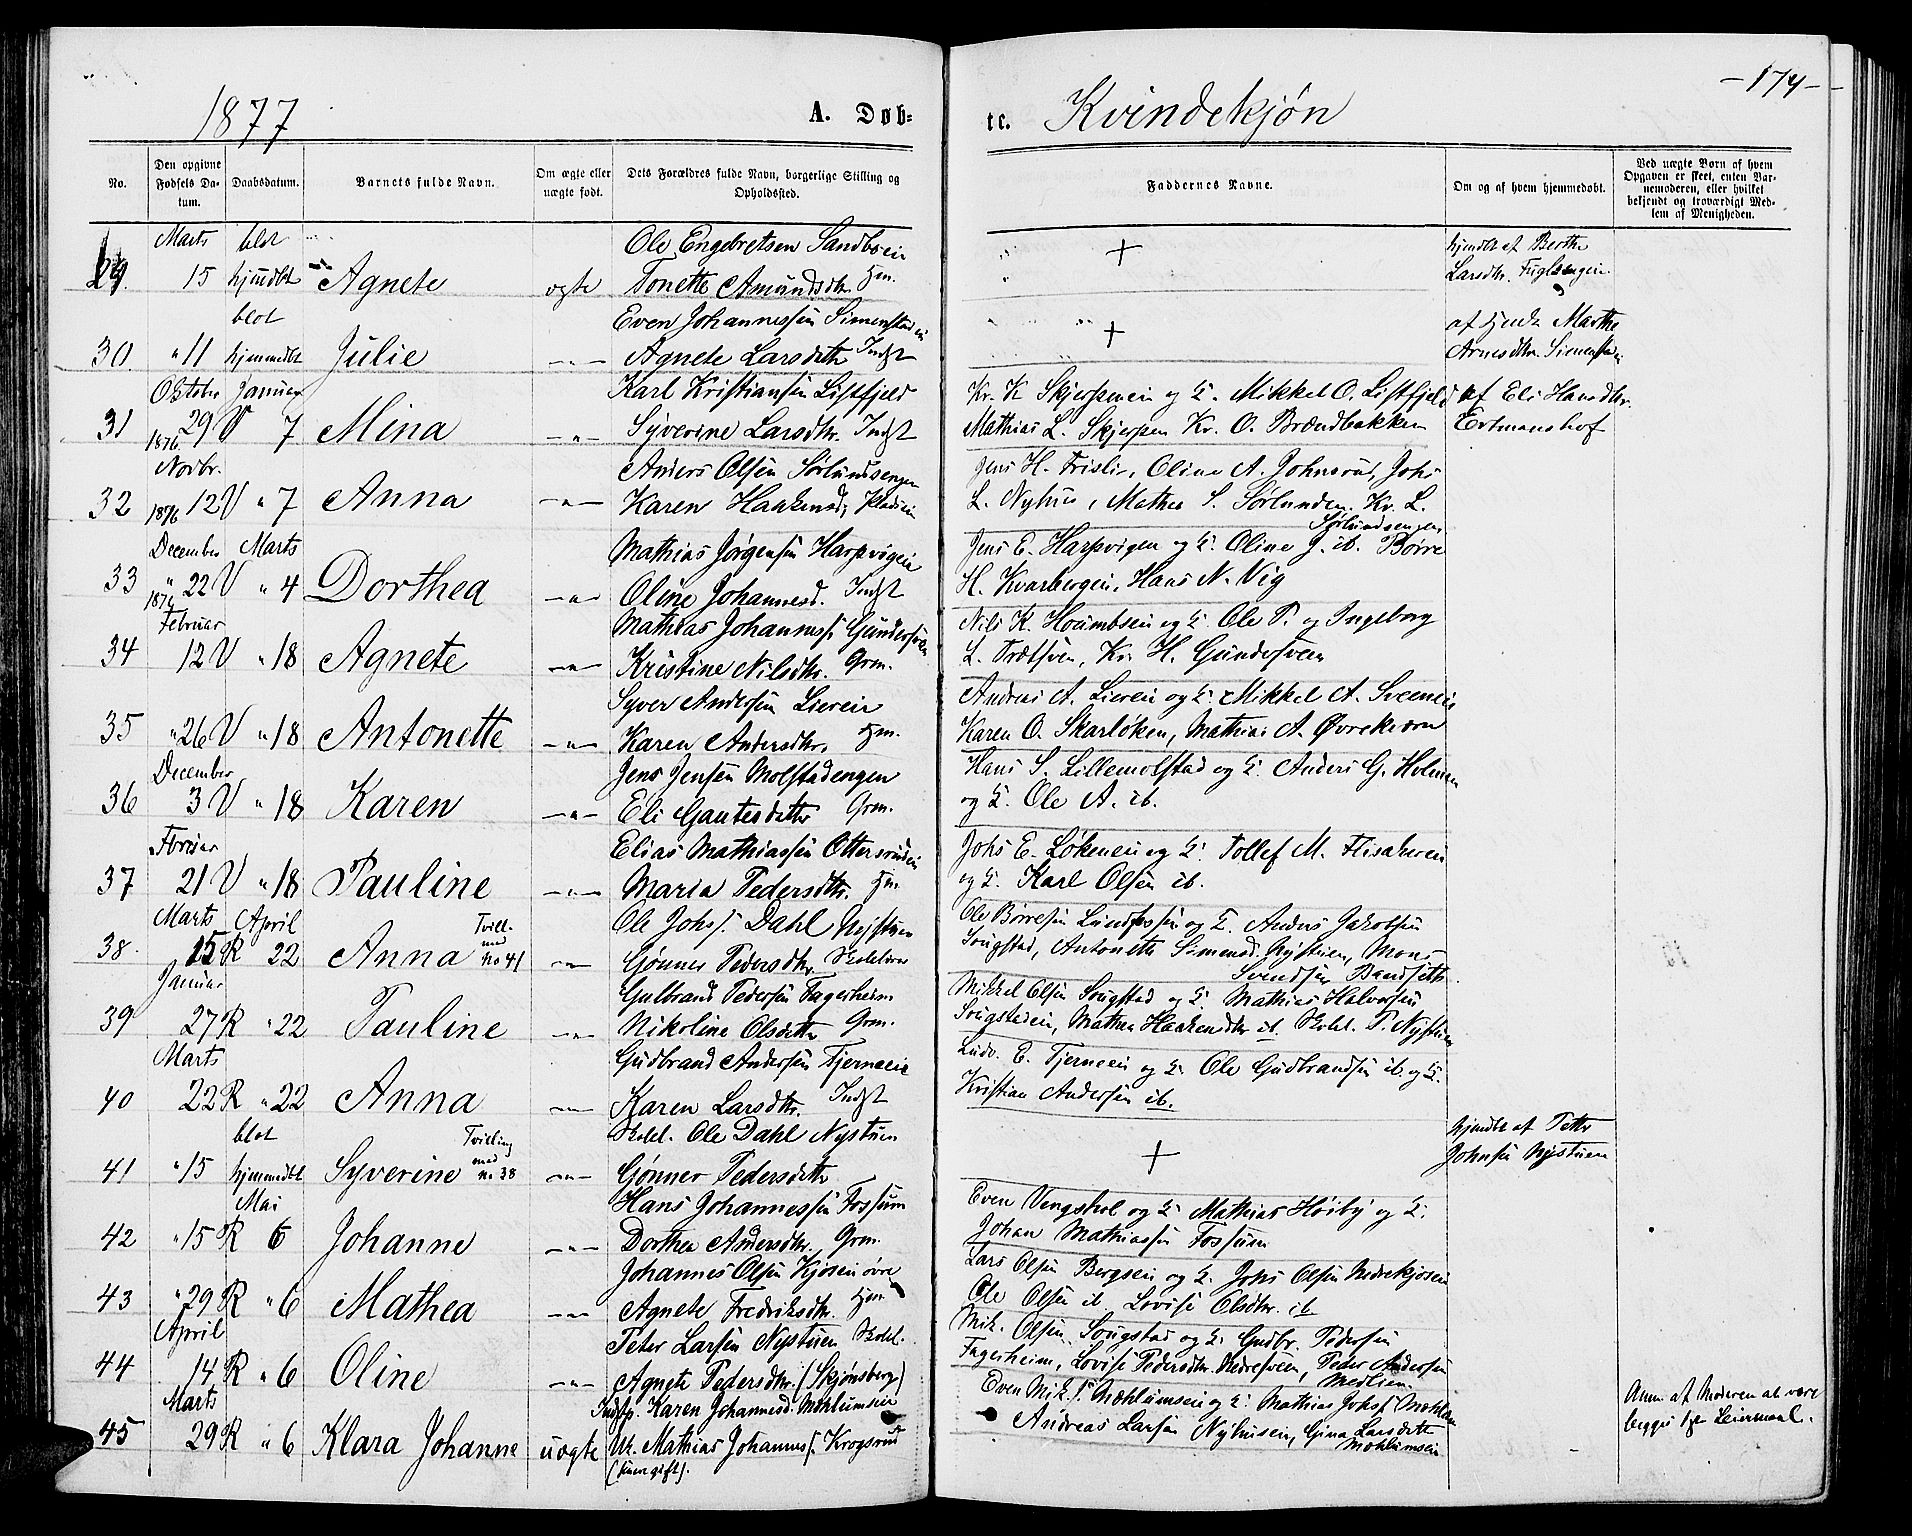 1877 A. Døb- te. Kvindekjøn -174-
No. Den opgivne Fødsels Da- tum. Daabsdatum. Barnets fulde Navn. Om ægte eller uægte født. Dets Forældres fulde Navn, borgerlige Stilling og Opholdssted. Faddernes Navne. Om og af hvem hjemmedøbt. Ved uægte Børn af hvem Opgaven er skeet, enten Bar- nemoderen, eller hvilket bekjendt og troværdigt Med- lem af Menigheden.
Marts blot Ole Engebretsen Sandboein + hjmdbt af Berthe
29. 15 hjmdbt Agnete ægte Tonette Amundsdtr. Hjm. Larsdtr. Fuglsengein
blot Even Johannessen Simenstadein + af Marthe
30. " 11 hjemmedbt Julie -"- Agnete Larsdattr Indst Arnesdtr. Simenstadein
Oktober Januar Karl Kristiansen Listfjeld Kr. K. Skjerpenein og H. Mikkel O. Listfjeld af Eli Hansdtr.
31 1876 29 V 7 Mina -"- Syverine Larsdtr. Indst Mathias L. Skjerpen Kr. O. Brændbakken Ertmanshof
Novbr. Anders Olsen Sørlundsengen Jens H. Frisli, Oline A. Johnsrud, Johs
32 1876 12 V " 7 Anna -"- Karen Haakensd. L. Nyhus, Mathea S. Sørlunden. Kr. L.
Sørlundsengen
December Marts Mathias Jørgensen Harpvigein Jens E. Harpvigen og H. Oline J. ib. Børre
33 " 1876 22 V " 4 Dorthea -"- Oline Johannesd. Indst H. Kvarbergein, Hans N. Vig
Februar Mathias Johanness. Gundersveen Nils K. og H. Ole P. og Ingeborg
34 12 V " 18 Agnete -"- Kristine Nilsdtr. Grm. L. Trætsven, Kr. H. Gundersveen
Syver Andersen Liereie Andreas A. Liereie og H. Mikkel A. Sveeneie
35 " 26 V " 18 Antonette -"- Karen Andersdtr. Hjm. Karen O. Skarløken, Mathias A. Øvrekværn
December Jens Jensen Molstadengen Hans S. Lillemolstad og H. Anders G. Holmen
36 3 V " 18 Karen -"- Eli Gautesdatter Grm. og H. Ole A. ib.
Februar Elias Mathiassen Ottersrudein Johs E. Løkeneie og H. Tollef M. Flisakeren
37 21 V " 18 Pauline -"- Maria Pedersdtr. Hjm. og H. Karl Olsen ib.
Marts April Tvill. Ole Johs. Dahl Nystuen Ole Børresen Lundfossen og H. Anders Jakobsen
38. 15 R 22 Anna med No 41 -"- Gønner Pedersdtr. Skolelærer Sougstad, Antonette Simensd. Nystuen, Mons
Svendsen Bandseth.
Januar Gulbrand Pedersen Fagerheim Mikkel Olsen Sougstad og H. Mathias Halvorsen
39 27 R " 22 Pauline -"- Nikoline Olsdatter Grm. Sougstadein, Mathea Haakensdtr ib. Skolel. P. Nystuen
Marts Gudbrand Andersen Tjerneeie Ludv. E. Tjerneein og H. Ole Gudbrandsen ib. og H.
40 22 R " 22 Anna -"- Karen Larsdtr. Indst Kristian Andersen ib.
blot Tvilling Skolel. Ole Dahl Nystuen + hjmdbt af Petter
41 " 15 hjemmedbt Syverine med No 38 -"- Gønner Pedersdatter Johnsen Nystuen
Mai Hans Johannessen Fossum Even Vengshol og H. Mathias Høiby og H.
42 " 15 R 6 Johanne -"- Dorthea Andersdtr. Grm. Johan Mathiassen Fossum
Johannes Olsen Kjosein øvre Lars Olsen Bergsein og H. Johs Olsen Nedrekjosein
43 " 29 R " 6 Mathea -"- Agnete Fredriksdtr. Hjm. Ole Olsen ib. Lovise Olsdtr. ib
April Peter Larsen Nystuen Skolel. Mik. Olsen Sougstad og H. Gudbr. Pedersen
44 14 R " 6 Oline -"- Agnete Pedersdtr. (Skjønsberg) Fagerheim, Lovise Pedersdtr. Nedresveen, Peder Andersen
Medlien.
Marts Indstp. Karen Johannesd. Mohlumseie Even Mik.s. Mæhlumseie og H. Mathias Johs. Mohlum Anm. af Moderen at være
45 29 R " 6 Klara Johanne uægte Uk. Mathias Johanness. Krogsrud Andreas Larsen Nyhusein, Gina Larsdatter begges 1ste Leiermaal.
Mohlumsein